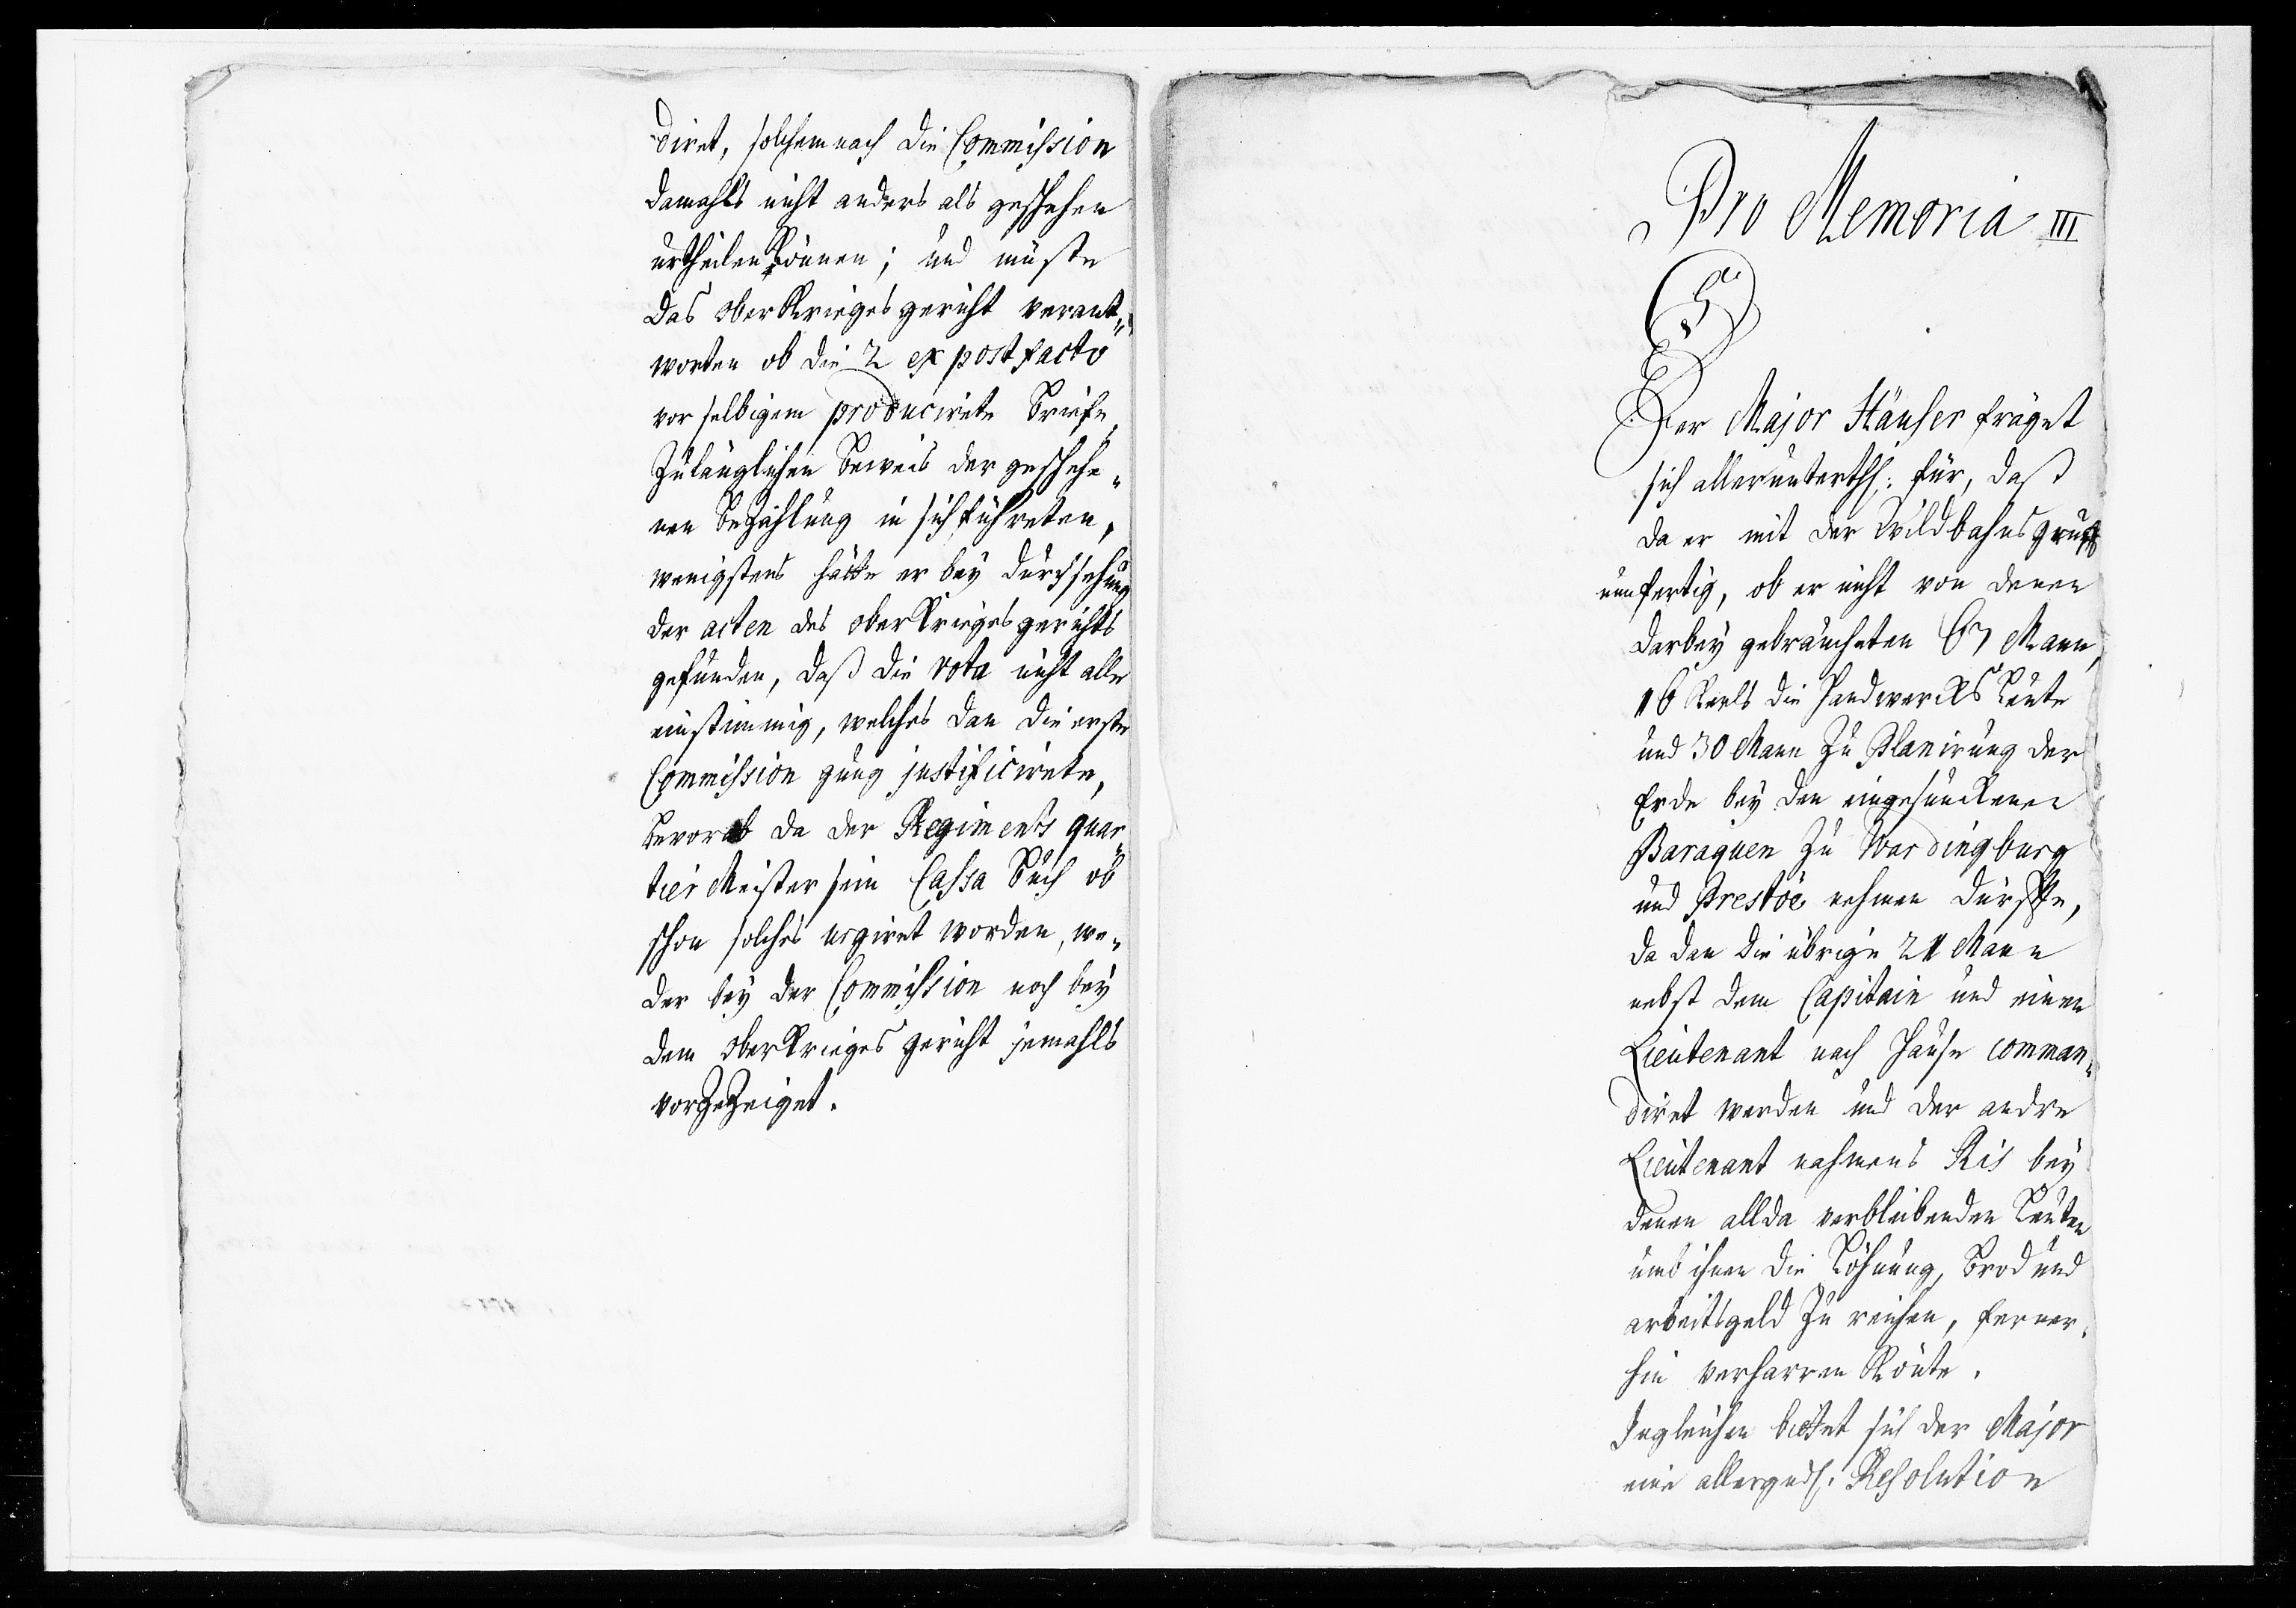 diret, solchem nach die Commission
damahls nicht anders als geschehen
urtheilen können; und müste
das OberKriegesgericht verant„
worten ob die 2 ex post facto
vor selbigem producirete Briefe,
Zulänglichen Beweis der geschehe„
nen Bezahlung in sich führeten,
wenigstens hätte er bey durchsehung
der acten des OberKriegesgerichts
gefunden, daß die vota nicht alle
einstimmig, welches dan die erste
Commission gnug justificirete,
bevorab da der Regiments quar„
tier Meister sein Cassa Buch ob
schon solches urgiret worden, we„
der bey der Commission noch bey
dem OberKrieges gericht jemahls
vorgezeiget.
Pro Memoria III
Der Major Häuser fräget
sich allerunterths: für, daß
da er mit der Wildbahns
nun fertig, ob er nicht von denen
darbey gebraucheten 67 Mann,
16 Kerls die Handwercks Leute
und 30 Mann Zu Planirung der
Erde bey den eingesunckenen
Baraquen Zu Wordingburg
und Prestöe nehmen dürffte,
da dan die übrige 21 Mann
nebst dem Capitain und einen
Lieutenant nach Hause comman„
diret werden und der andre
Lieutenant nahmens Ris bey
denen allda verbleibenden Leuten
umb ihnen die Löhnung, Brod und
arbeitsgeld Zu reichen, ferner„
hin verharren Könte.
Ingleichen bittet sich der Major
eine allergnds: Resolution